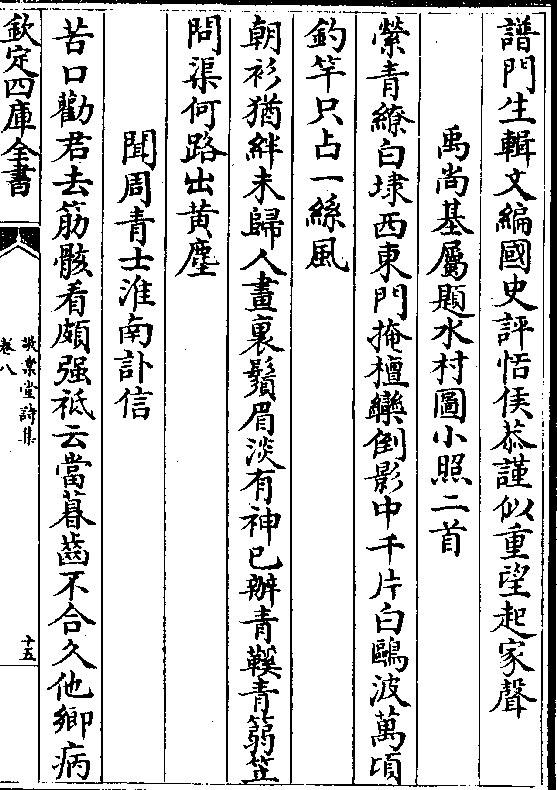 譜門生輯文編國史評恬侯恭謹似重望起家聲
禹尚基屬題水村圖小照二首
縈青繚白埭西東門掩檀欒倒影中千片白鷗波萬頃
釣竿只占一絲風
朝衫猶絆未歸人畫裏鬚眉淡有神已辦青鞵青篛笠
問渠何路出黄塵
聞周青士淮南訃信
苦口勸君去筋骸看頗强祗云當暮齒不合久他鄉病
欽定四庫全書
卷八
敬業堂詩集
十五